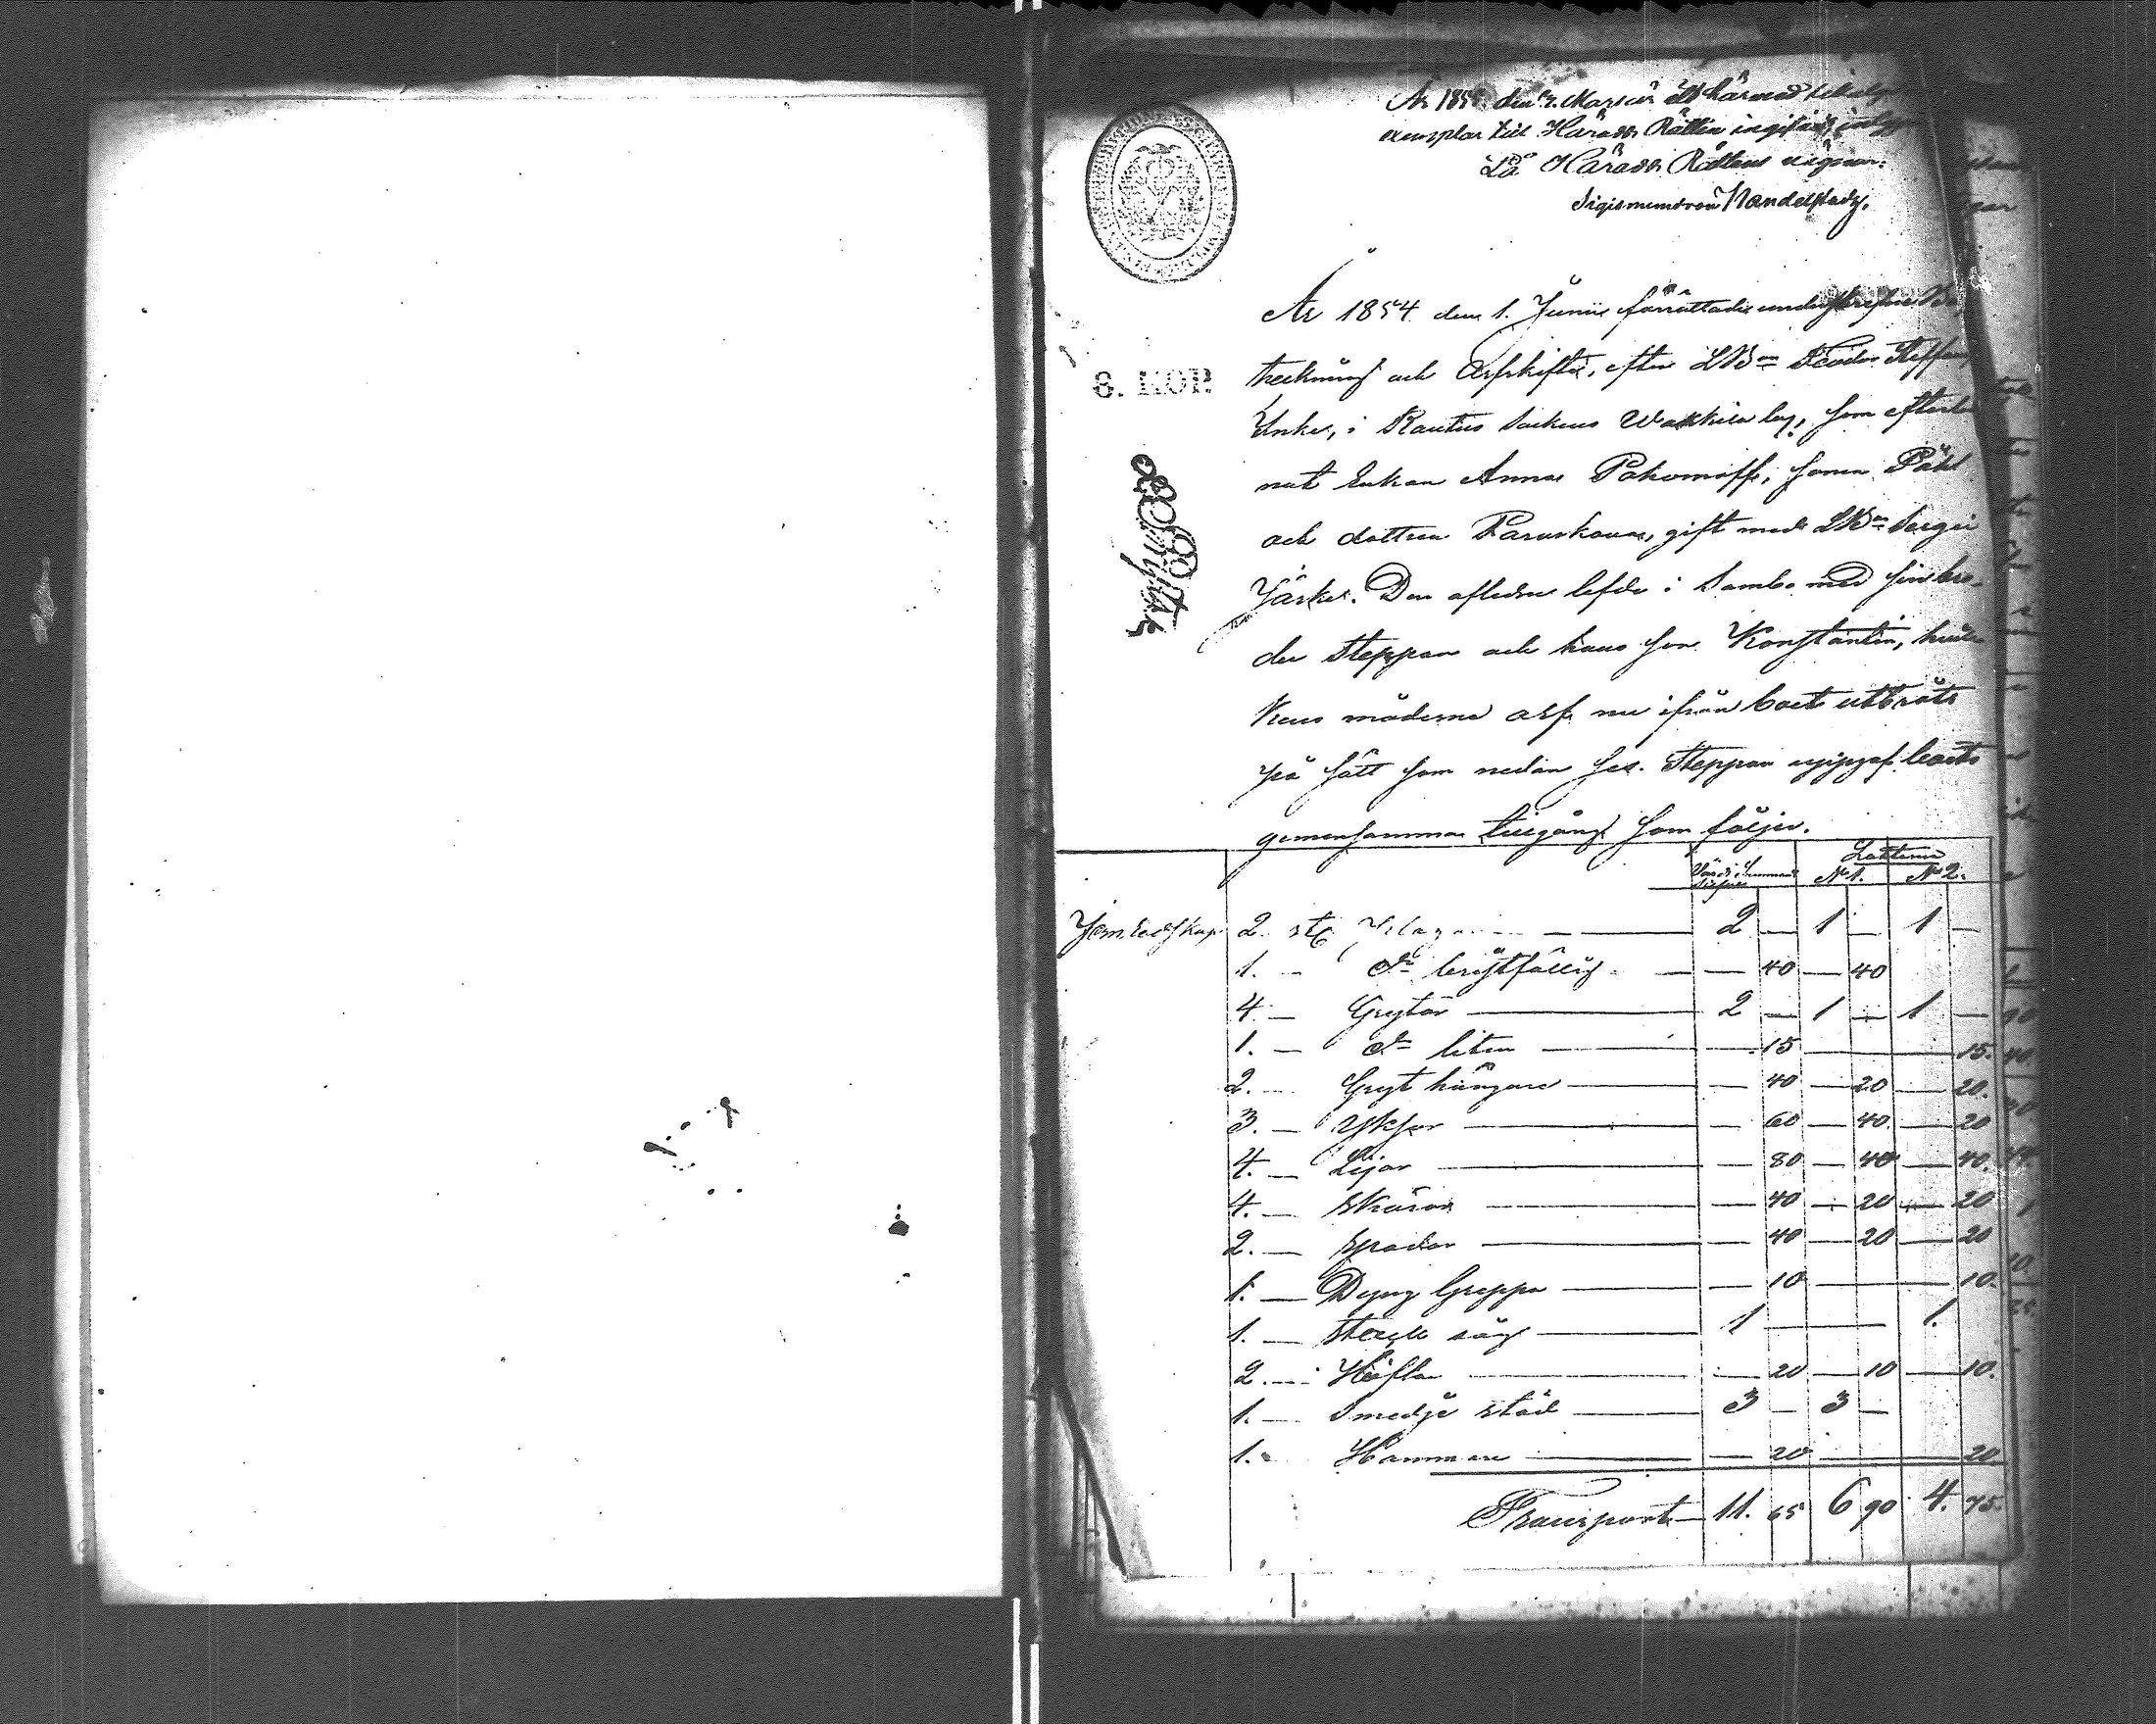 År 185 den Martii ett härmed
exemplar till Härads Rätten ingifvit,
På Härads Rättens vägnar:
Sigismund von Nandelstadh.
6. KOP.
År 1854 den 1. Junii förrättades underskrefne Bo
teckning och Arfskifte, efter LBn Feodor Steffan
Inke, i Rautus Sockens Wakkila by, som efterlem
nat Enkan Anna Pahomoff, sonen Påhl
och dottren Paraskowa, gift med LBn Sergei
Järke. Den aflidne lefde i Sambo med sin bro-
der Steppan och hans son Konstantin, hvil
kens möderne arf nu ifrån boet utbröts
på sätt som nedan ses. Steppan uppgaf boets
gemensamma tillgång som följer.
Värde Summa Silfver Lotterne
No 1. No 2.
Jern redskap 2. st. 2 — 1 — 1 —
1. — do bristfällig — — 40 — 40
4. — Grytor — 2 — 1 — 1 —
1. — do liten — — 15 — 15.
2. — Gryt hängare — — 40 — 20 — 20.
3. — Yxor — — 60 — 40. — 20
4. — Lijar — — 80 — 40 — 40.
4. — Skäror — — 40 — 20 — 20
2. — Spadar — — 40 — 20 — 20
1. — Dyng Greppa — — 10 — 10.
1. — Stock såg — 1 — 1.
2. — Höfla — — 20 — 10 — 10.
1. — Smedje städ — 3 — 3 —
1. Hammare — — 20 — 20
Transport — 11. 65 6 90 4. 75.